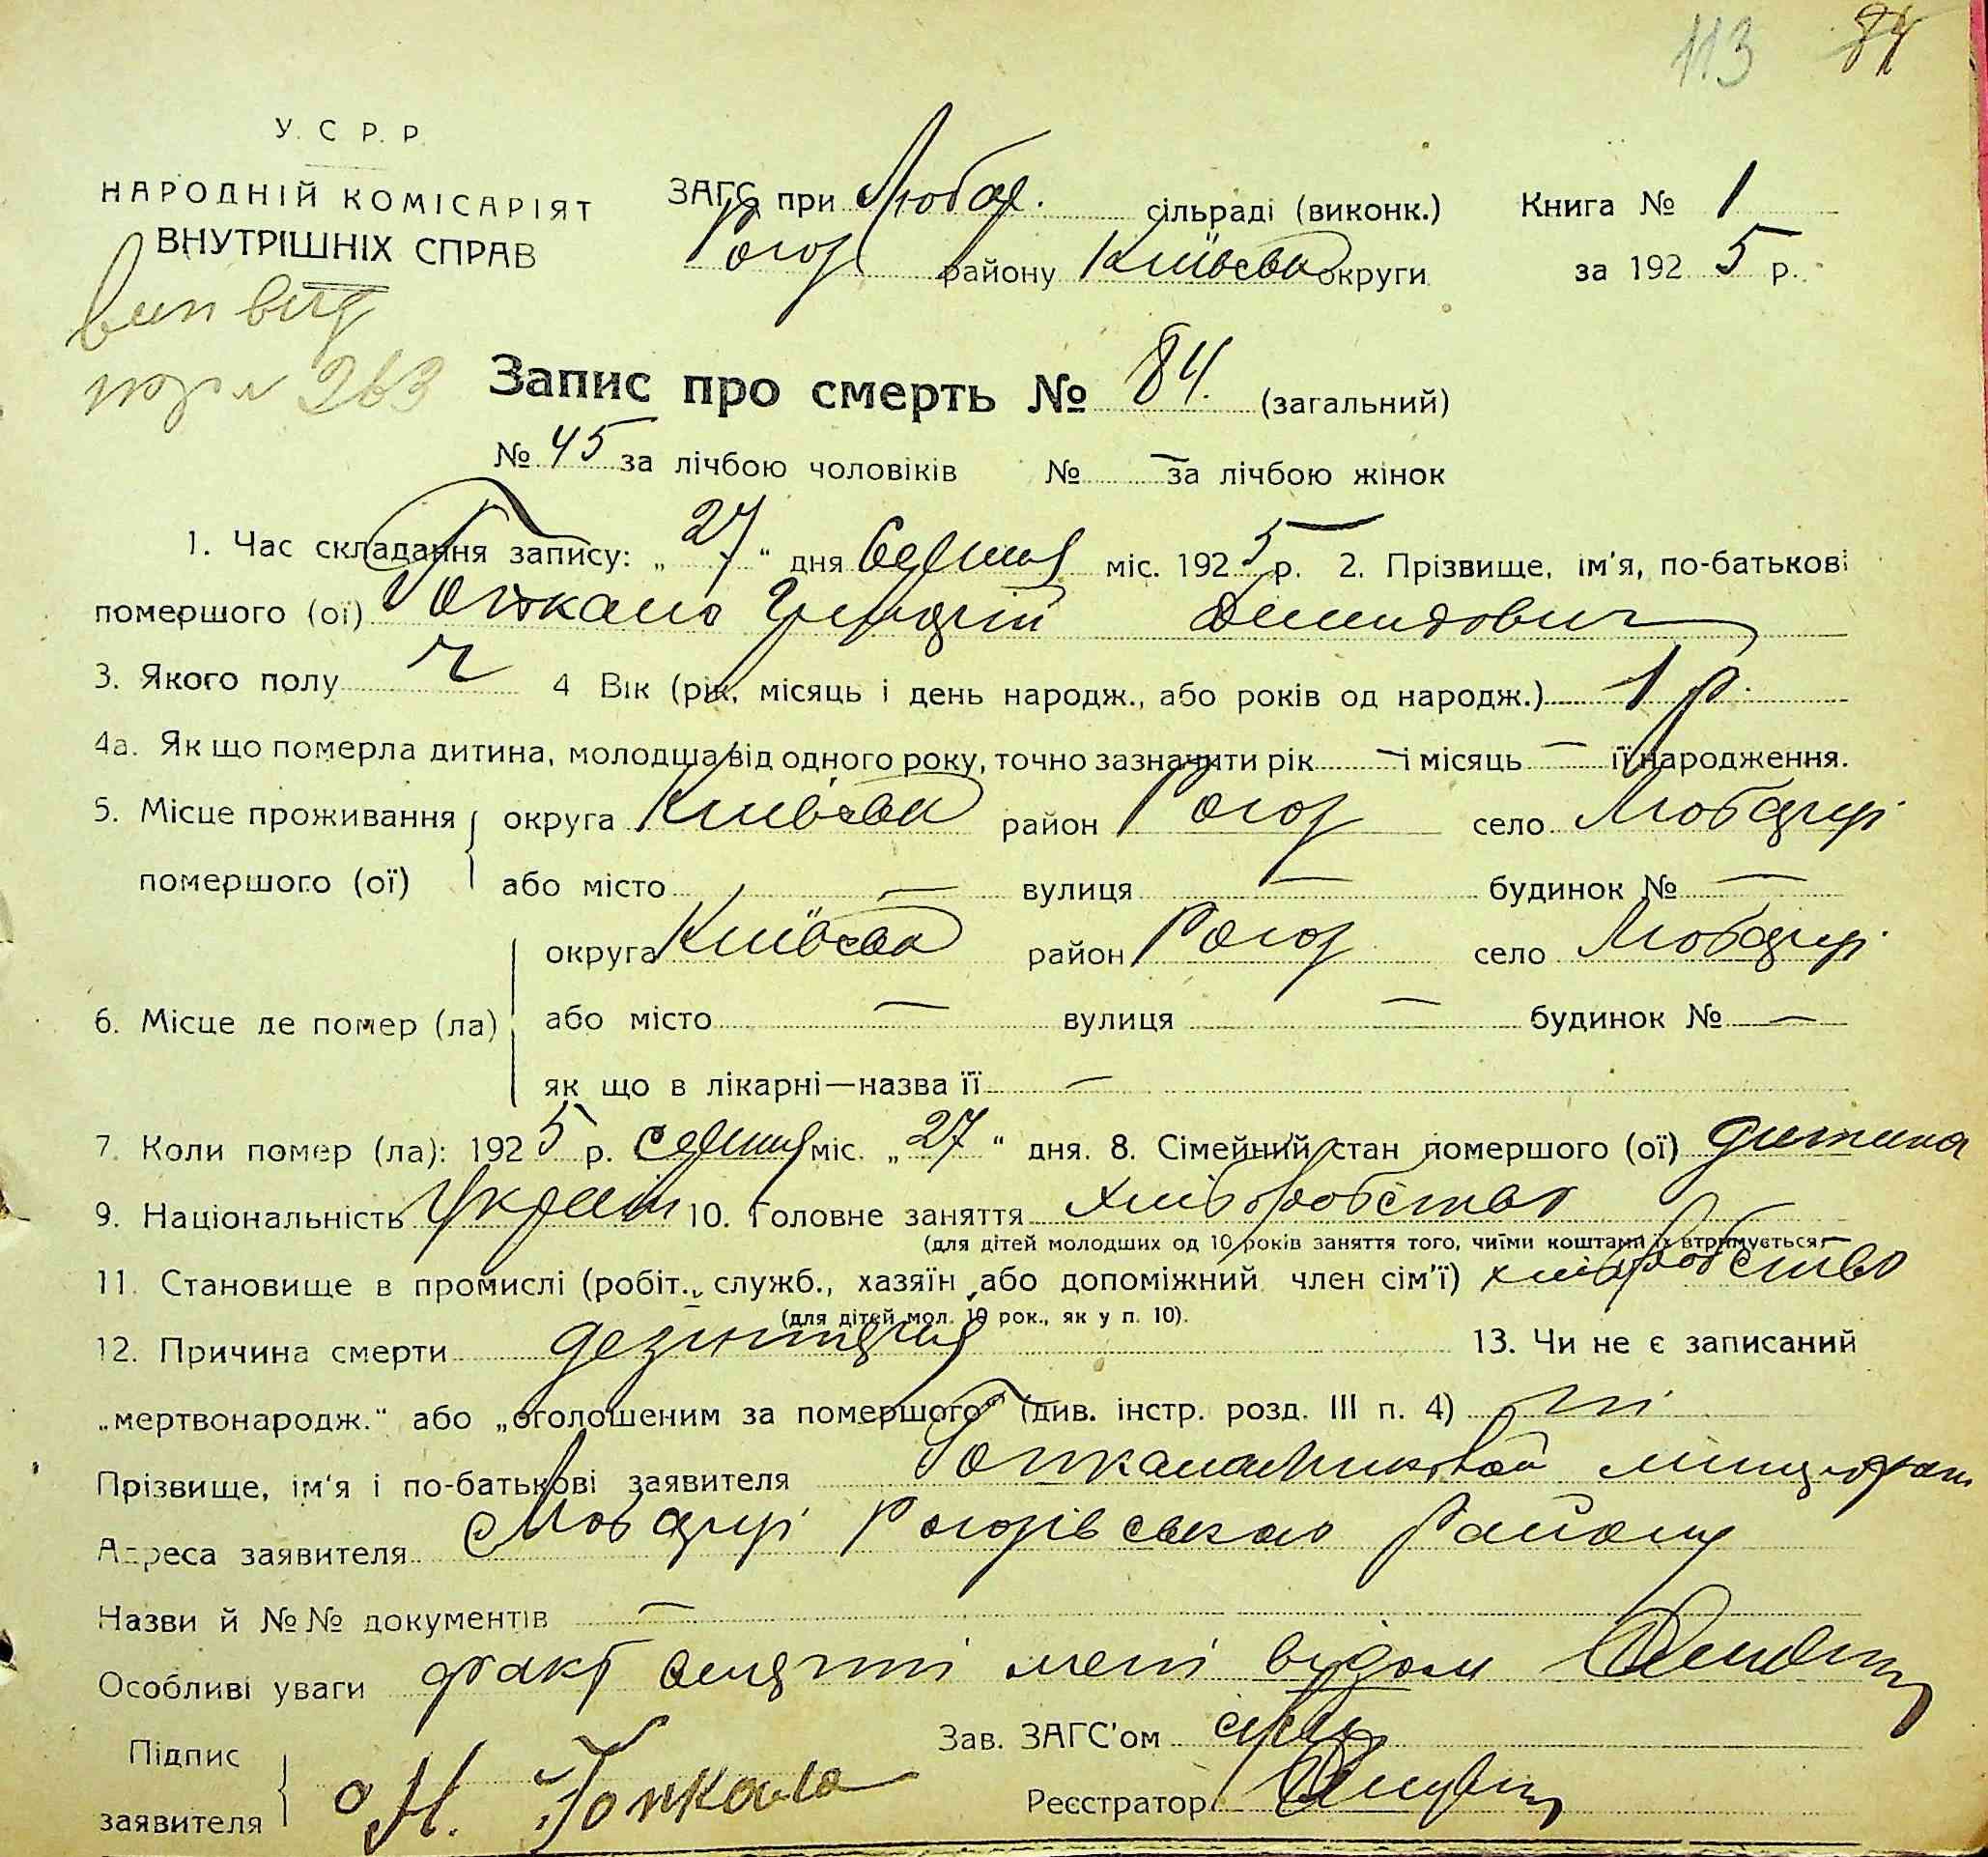 113 84
У. С. Р. Р.
НАРОДНІЙ КОМІСАРІЯТ
ВНУТРІШНІХ СПРАВ
ЗАГС при Любар. сільраді (виконк.) Книга № 1
Рогоз району Київська округи за 1925 р.
263
Запис про смерть № 84. (загальний)
№ 45 за лічбою чоловіків № — за лічбою жінок
1. Час складання запису: „27“ дня Серпня міс. 1925 р. 2. Прізвище, ім'я, по-батькові
помершого (ої) Демидович
3. Якого полу ч 4 Вік (рік, місяць і день народж., або років од народж.) 1 р.
4а. Як що померла дитина, молодша від одного року, точно зазначити рік — і місяць — її народження.
5. Місце проживання округа Київська район Рогоз село Любарці
помершого (ої) або місто — вулиця — будинок № —
округа Київська район Рогоз село Любарці
6. Місце де помер (ла) або місто — вулиця — будинок № —
як що в лікарні—назва її —
7. Коли помер (ла): 1925 р. Серпня міс. „27“ дня. 8. Сімейний стан помершого (ої) дитина
9. Національність Україн 10. Головне заняття хліборобство
(для дітей молодших од 10 років заняття того, чиїми коштами їх втримується)
11. Становище в промислі (робіт., служб., хазяїн або допоміжний член сім'ї) хліборобство
(для дітей мол. 10 рок., як у п. 10).
12. Причина смерти дезинтерия 13. Чи не є записаний
„мертвонародж.“ або „оголошеним за помершого“ (див. інстр. розд. III п. 4) ні
Прізвище, ім'я і по-батькові заявителя
Адреса заявителя Любарці Рогозівського Району
Назви й №№ документів —
Особливі уваги факт смерти мені відом
Підпис
заявителя
Зав. ЗАГС'ом
Реєстратор